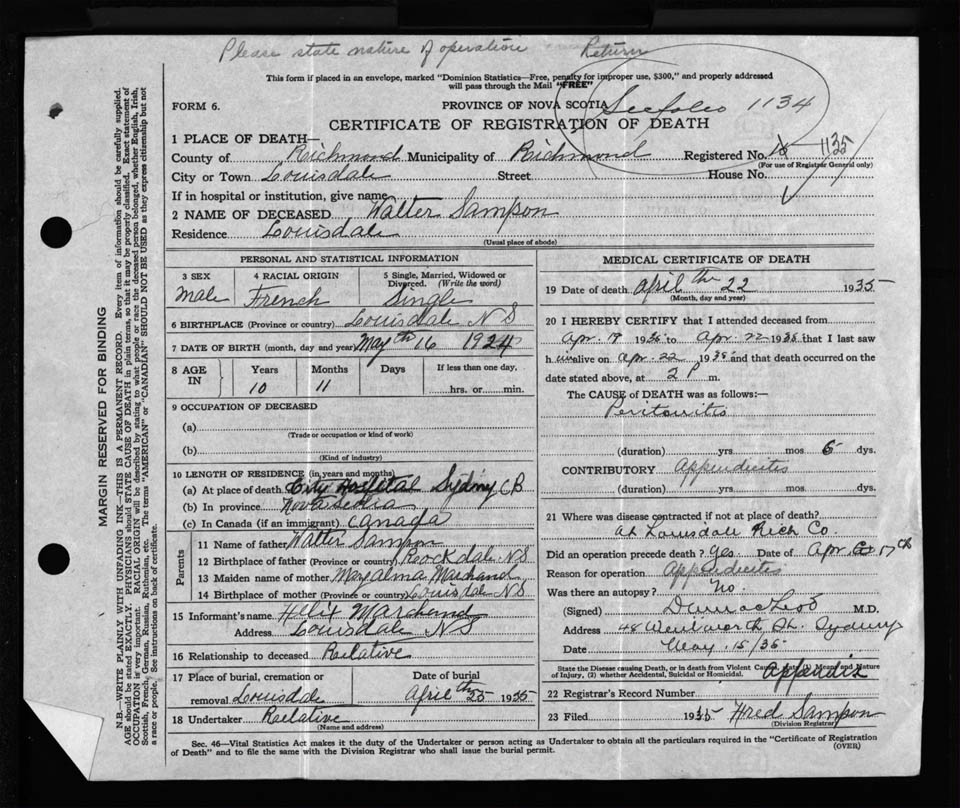 Please state nature of operation Return
This form if placed in an envelope, marked "Dominion Statistics—Free, penalty for improper use, $300," and properly addressed
will pass through the Mail "FREE"
FORM 6. PROVINCE OF NOVA SCOTIA See folio 1134
CERTIFICATE OF REGISTRATION OF DEATH
1 PLACE OF DEATH—
County of Richmond Municipality of Richmond Registered No. 1135
(For use of Registrar General only)
City or Town Louisdale Street House No.
If in hospital or institution, give name
2 NAME OF DECEASED Walter Sampson
Residence Louisdale
(Usual place of abode)
PERSONAL AND STATISTICAL INFORMATION
3 SEX 4 RACIAL ORIGIN 5 Single, Married, Widowed or
Divorced. (Write the word)
Male French Single
6 BIRTHPLACE (Province or country) Louisdale N S
7 DATE OF BIRTH (month, day and year) May th 16 1924
8 AGE IN Years Months Days If less than one day,
10 11 hrs. or min.
9 OCCUPATION OF DECEASED
(a)
(Trade or occupation or kind of work)
(b)
(Kind of industry)
10 LENGTH OF RESIDENCE (in years and months)
(a) At place of death City Hospital Sydney CB
(b) In province Nova Scotia
(c) In Canada (if an immigrant) Canada
Parents
11 Name of father Walter Sampson
12 Birthplace of father (Province or country) Rockdale NS
13 Maiden name of mother May Alma Marchand
14 Birthplace of mother (Province or country) Louisdale NS
15 Informant's name Felix Marchand
Address Louisdale NS
16 Relationship to deceased Relative
17 Place of burial, cremation or Date of burial
removal Louisdale April th 25 1935
18 Undertaker Relative
(Name and address)
MEDICAL CERTIFICATE OF DEATH
19 Date of death April th 22 1935
(Month, day and year)
20 I HEREBY CERTIFY that I attended deceased from
Apr. 1935 to Apr. 22 1935 that I last saw
h im alive on Apr. 22 1935 and that death occurred on the
date stated above, at 2 P m.
The CAUSE of DEATH was as follows:—
Peritonitis
(duration) yrs mos 5 dys.
CONTRIBUTORY Appendicitis
(duration) yrs. mos dys.
21 Where was disease contracted if not at place of death?
at Louisdale Rich Co
Did an operation precede death? Yes Date of Apr. 17th
Reason for operation Appendicitis
Was there an autopsy? No.
(Signed) M.D.
Address 48 Wentworth St. Sydney
Date May 15/35
State the Disease causing Death, or in death from Violent Causes, state (1) Means and Nature
of Injury, (2) whether Accidental, Suicidal or Homicidal. Appendix
22 Registrar's Record Number
23 Filed 1935 Fred Sampson
(Division Registrar)
Sec. 46—Vital Statistics Act makes it the duty of the Undertaker or person acting as Undertaker to obtain all the particulars required in the "Certificate of Registration
of Death" and to file the same with the Division Registrar who shall issue the burial permit. (OVER)
MARGIN RESERVED FOR BINDING
N.B.—WRITE PLAINLY WITH UNFADING INK—THIS IS A PERMANENT RECORD. Every item of information should be carefully supplied.
AGE should be stated EXACTLY. PHYSICIANS should STATE CAUSE OF DEATH in plain terms, so that it may be properly classified. Exact statement of
OCCUPATION is very important. RACIAL ORIGIN will be described by stating to what people or race the deceased person belonged, whether English, Irish,
Scottish, French, German, Russian, Ruthenian, etc. The terms "AMERICAN" or "CANADIAN" SHOULD NOT BE USED as they express citizenship but not
a race or people. See instructions on back of certificate.